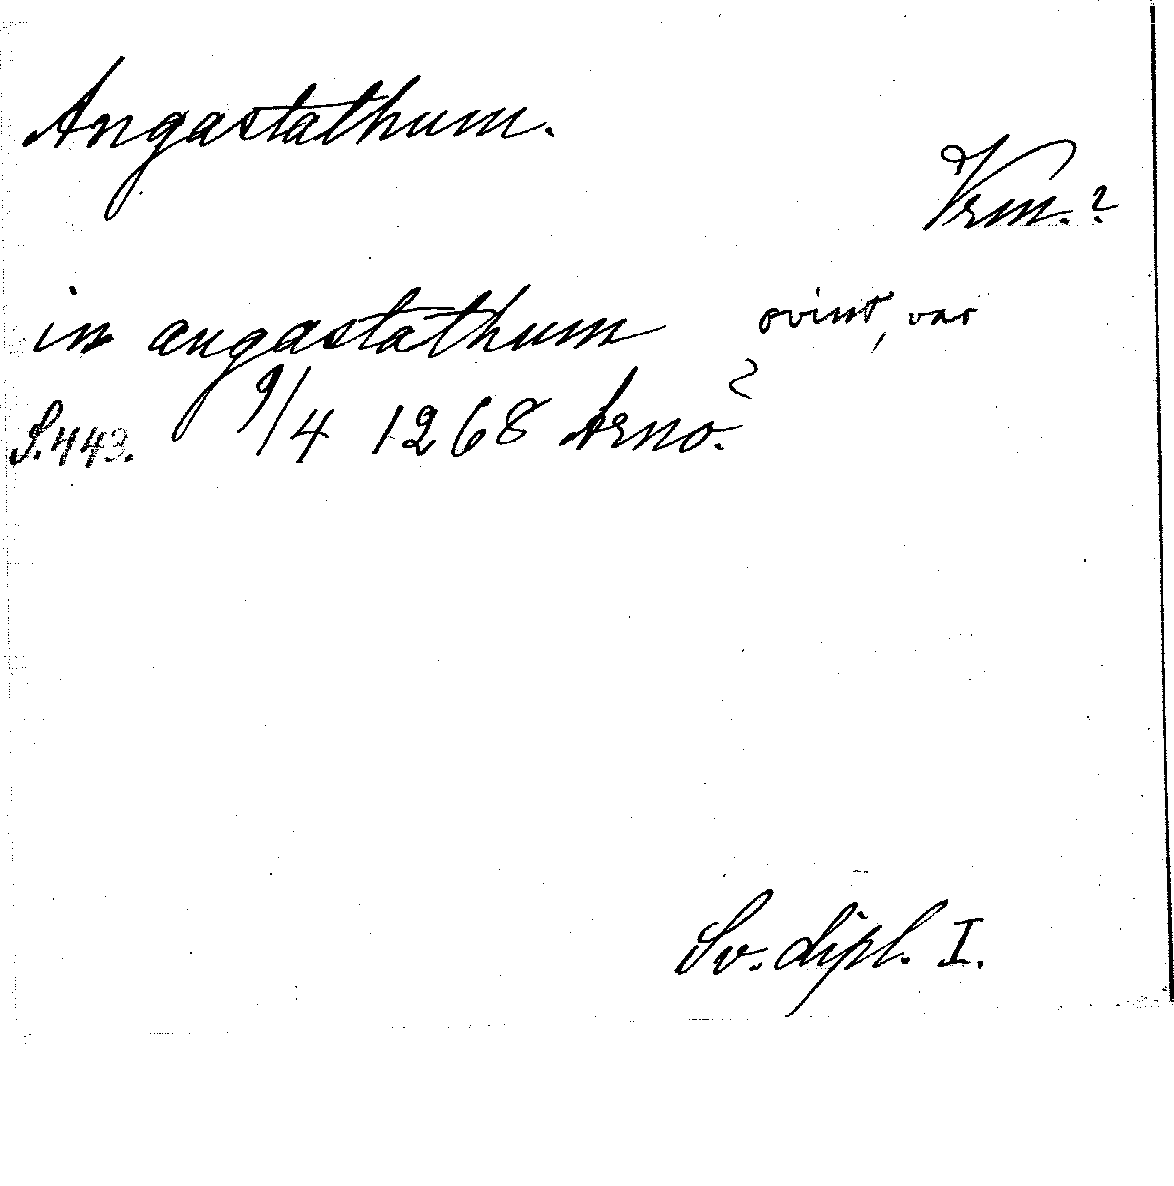 Angastathum.
Vrm.?
in angastathum ovisst, var
S. 443. 9/4 1268 Arnö.
Sv. dipl. I.